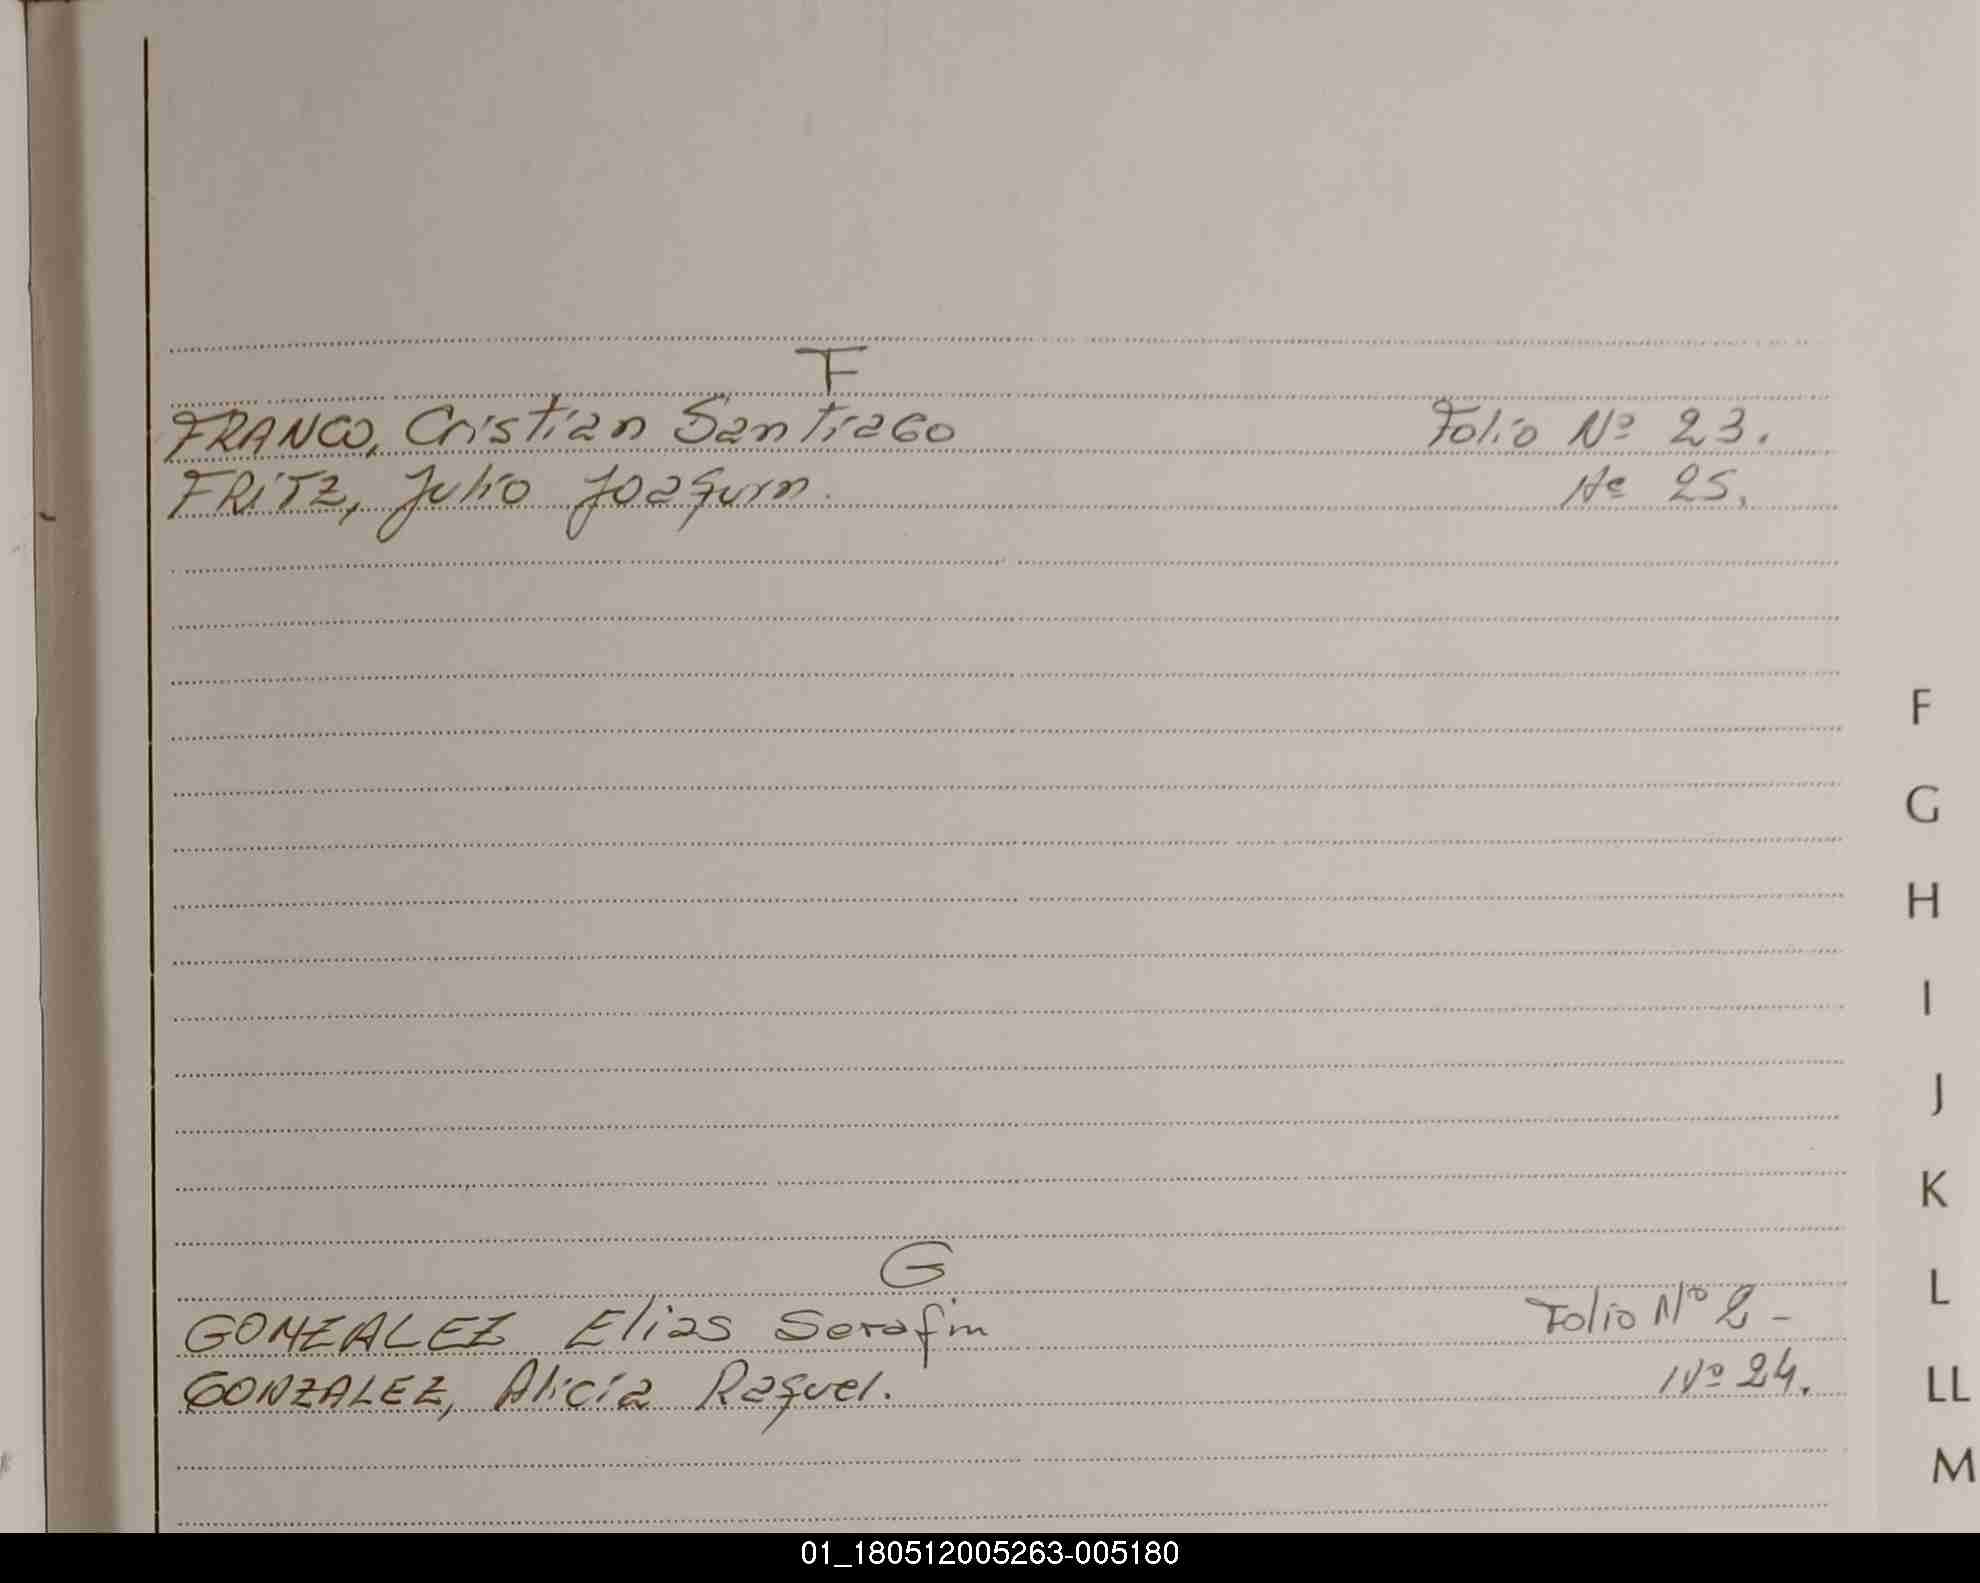 F
FRANCO, Cristian Santiago Folio Nº 23.
FRITZ, Julio Joaquin. Nº 25.
F
G
H
I
J
K
G
L
GONZALEZ Elias Serafin Folio Nº 2 -
GONZALEZ, Alicia Raquel. Nº 24.
LL
M
01_180512005263-005180